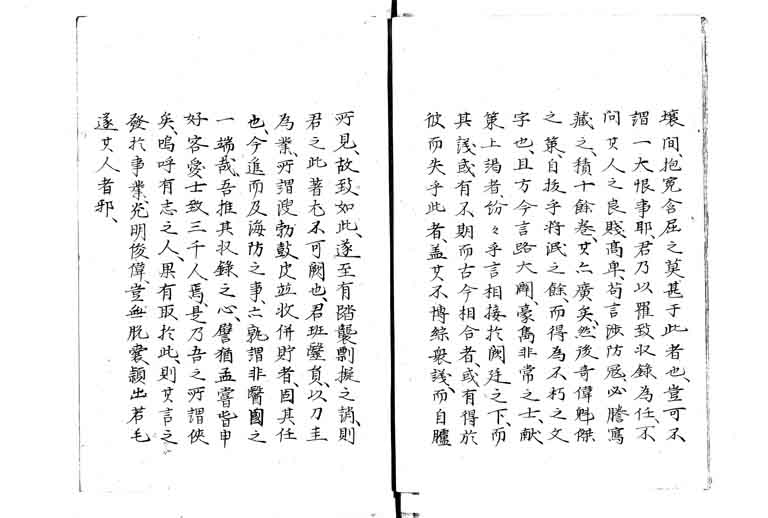 壤間抱冤含屈之莫甚于此者也、豈可不
謂一大恨事耶、君乃以羅致収錄為任、不
問其人之良賤髙卑、苟言涉防冦、必謄寫
藏之、積十餘卷、其亦廣矣、然後奇偉魁傑
之策、自抜乎將泯之餘、而得為不朽之文
字也、且方今言路大闢、豪雋非常之士、献
策上謁者、紛々乎言相接於闕廷之下、而
其議或有不期而古今相合者、或有得於
彼而失乎此者、盖其不博綜衆議、而自臚
所見、故致如此、遂至有踏襲剽擬之誚、則
君之此著尤不可闕也、君班毉負、以刀圭
為業、所謂溲勃皷皮並收併貯者、因其任
也、今進而及海防之事、亦孰謂非醫國之
一端哉、吾推其収錄之心、譬猶孟嘗皆申
好客愛士致三千人焉、是乃吾之所謂俠
矣、嗚呼有志之人、果有取於此、則其言之
發於事業、光明俊偉、豈無脫囊穎出若毛
遂其人者邪、